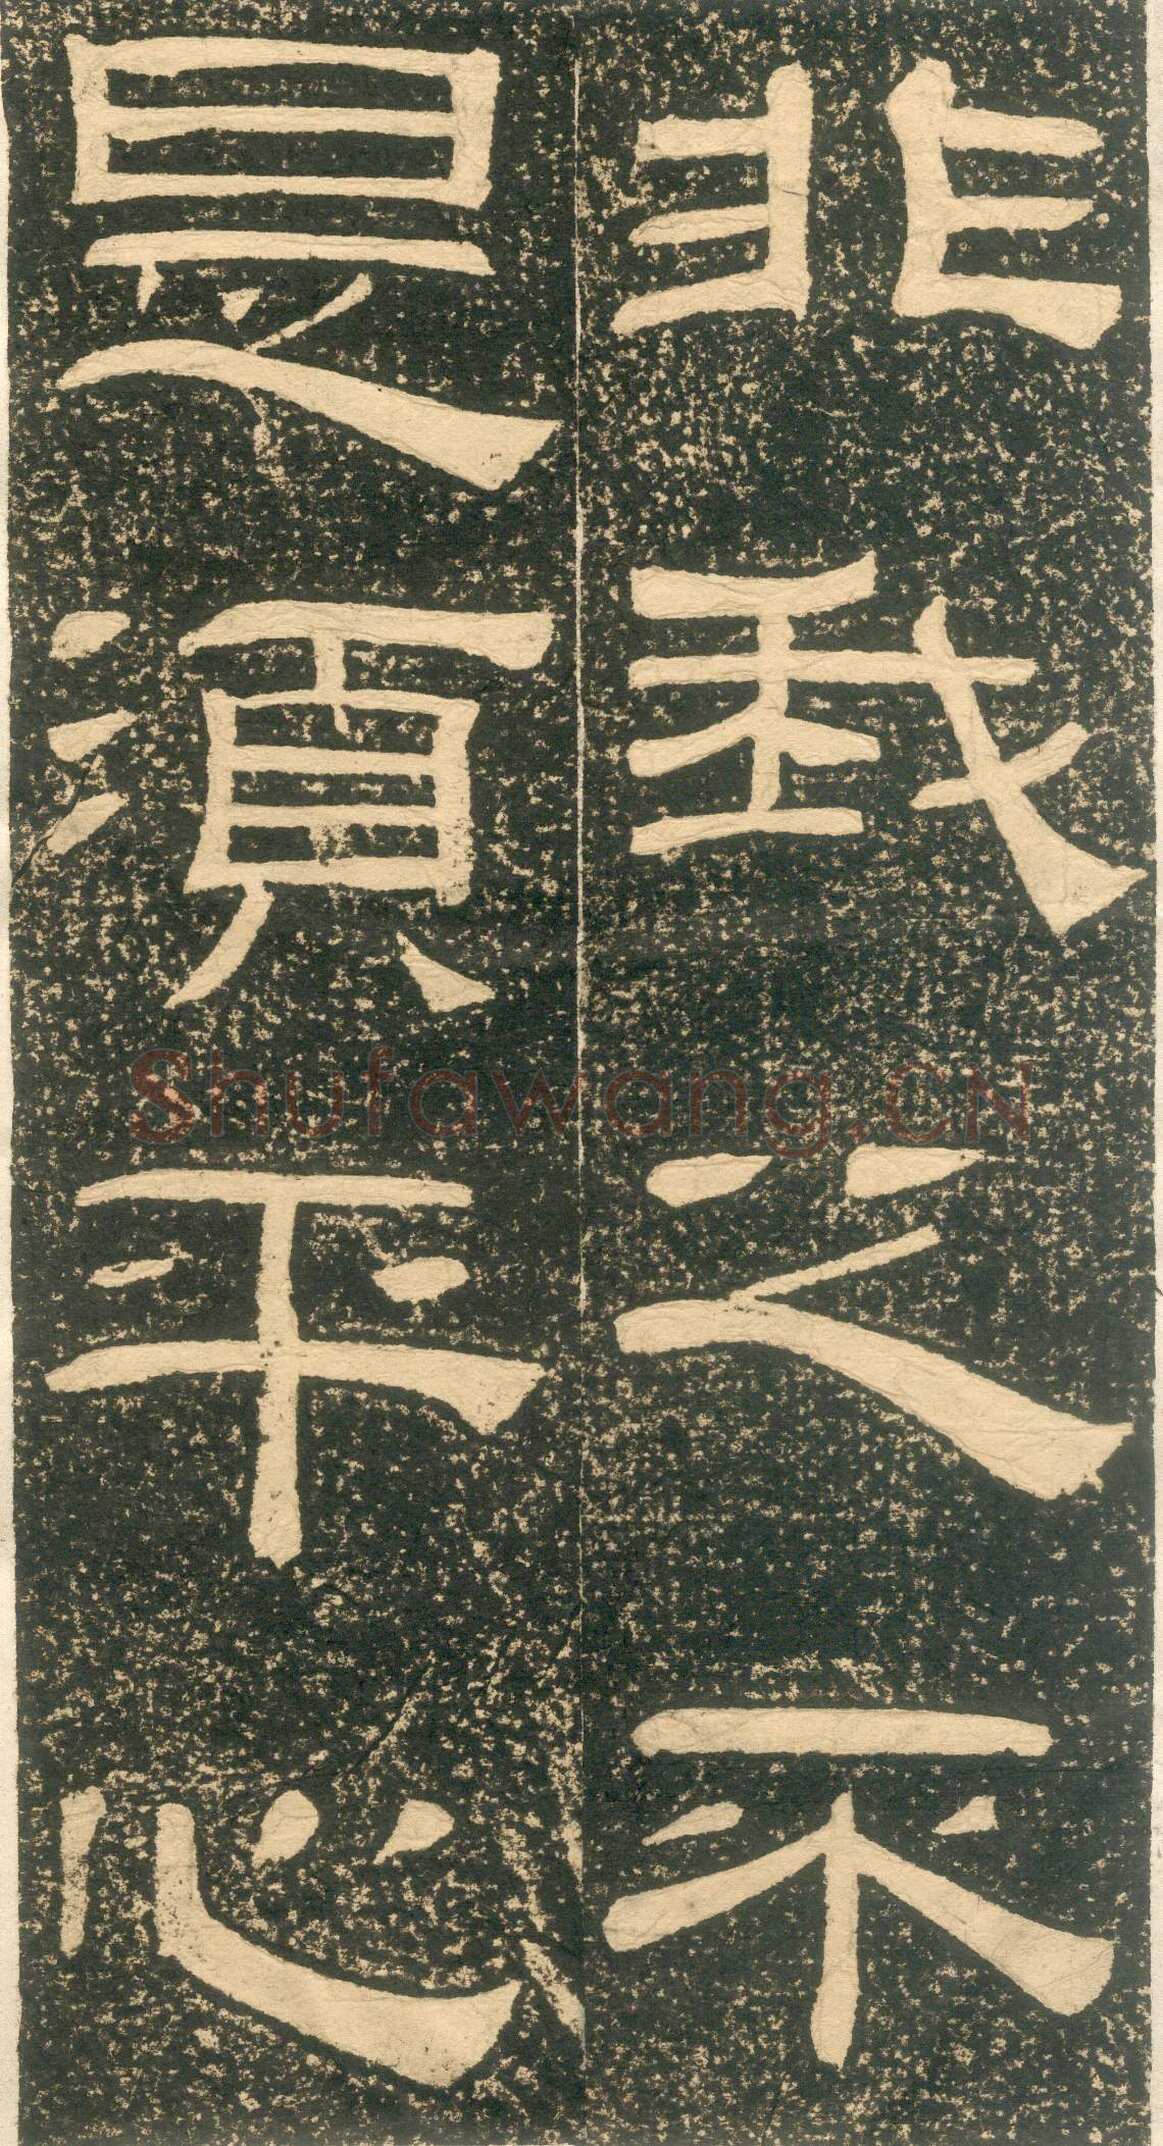 非我之不
是須平心
Shufawang.CN